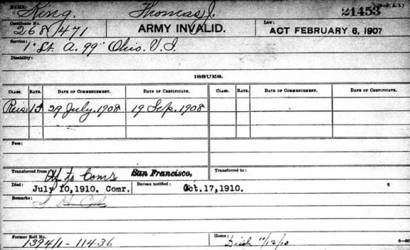 NAME:
King, Thomas J.
21453
Certificate No.
268471
ARMY INVALID.
LAW:
ACT FEBRUARY 6, 1907
Service:
1" Lt. A. 99" Ohio. V. I
Disability:
ISSUES.
CLASS. RATE. DATE OF COMMENCEMENT. DATE OF CERTIFICATE. CLASS. RATE. DATE OF COMMENCEMENT. DATE OF CERTIFICATE.
Reis 15 29 July. 1908 19 Sep. 1908
Fee:
Transferred from
San Francisco,
Died:
July 10, 1910. Comr.
Bureau notified:
Oct.17,1910.
Remarks:
Former Roll No.
Home: